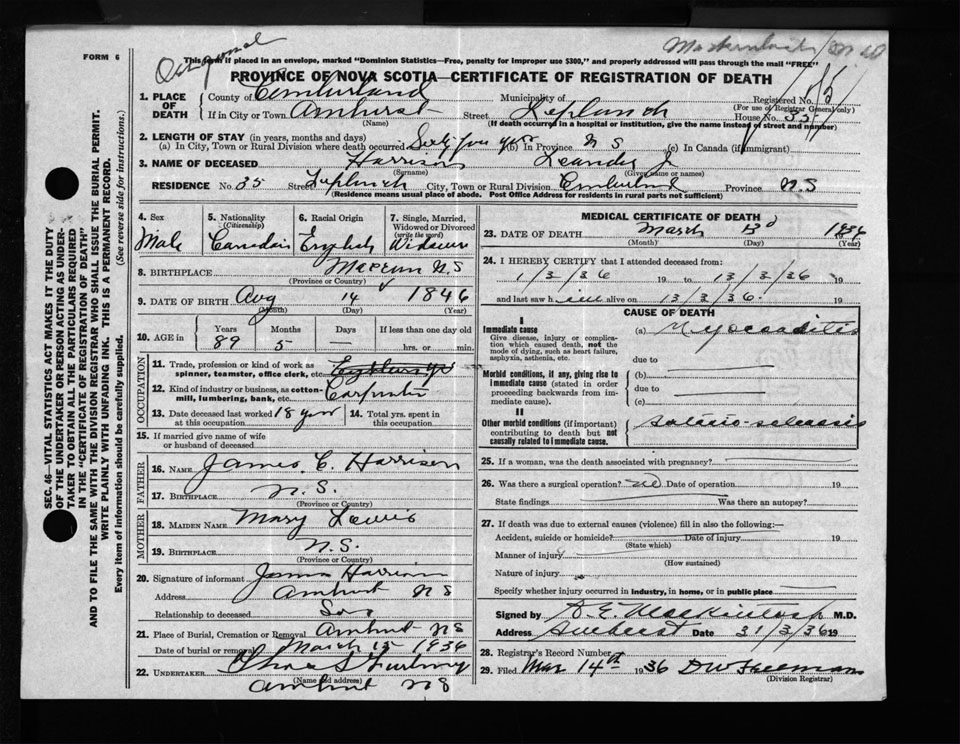 FORM 6
This form if placed in an envelope, marked "Dominion Statistics—Free, penalty for improper use $300," and properly addressed will pass through the mail "FREE"
PROVINCE OF NOVA SCOTIA—CERTIFICATE OF REGISTRATION OF DEATH
Registered No. 
(For use of Registrar General only)
1. PLACE OF DEATH
County of Cumberland Municipality of
If in City or Town Amherst Street House No. 35
(Name) (If death occurred in a hospital or institution, give the name instead of street and number)
2. LENGTH OF STAY (in years, months and days)
(a) In City, Town or Rural Division where death occurred Sixty four yrs (b) In Province N S (c) In Canada (if immigrant)
3. NAME OF DECEASED Harrison Leander J
(Surname) (Given name or names)
RESIDENCE No. 35 Street City, Town or Rural Division Cumberland Province N.S
(Residence means usual place of abode. Post Office Address for residents in rural parts not sufficient)
4. Sex Male
5. Nationality (Citizenship) Canadian
6. Racial Origin English
7. Single, Married, Widowed or Divorced (write the word) Widower
8. BIRTHPLACE Maccan N.S
(Province or Country)
9. DATE OF BIRTH Aug 14 1846
(Month) (Day) (Year)
10. AGE in Years Months Days If less than one day old
89 5 — hrs. or min.
OCCUPATION
11. Trade, profession or kind of work as spinner, teamster, office clerk, etc.
12. Kind of industry or business, as cotton-mill, lumbering, bank, etc. Carpenter
13. Date deceased last worked at this occupation 18 years
14. Total yrs. spent in this occupation
15. If married give name of wife or husband of deceased
FATHER
16. NAME James C. Harrison
17. BIRTHPLACE N.S.
(Province or Country)
MOTHER
18. MAIDEN NAME Mary Lewis
19. BIRTHPLACE N.S.
(Province or Country)
20. Signature of informant James Harrison
Address Amherst N S
Relationship to deceased Son
21. Place of Burial, Cremation or Removal Amherst NS
Date of burial or removal March 15 1936
22. UNDERTAKER
(Name and address)
Amherst NS
MEDICAL CERTIFICATE OF DEATH
23. DATE OF DEATH March 13 1936
(Month) (Day) (Year)
24. I HEREBY CERTIFY that I attended deceased from:
1/3/36 19 to 13/3/36 19
and last saw him alive on 13/3/36. 19
CAUSE OF DEATH
I
Immediate cause
Give disease, injury or complication which caused death, not the mode of dying, such as heart failure, asphyxia, asthenia, etc.
(a) Myocarditis
due to
Morbid conditions, if any, giving rise to immediate cause (stated in order proceeding backwards from immediate cause).
(b)
due to
(c)
II
Other morbid conditions (if important) contributing to death but not causally related to immediate cause.
Arterio-sclerosis
25. If a woman, was the death associated with pregnancy?
26. Was there a surgical operation? no Date of operation 19
State findings Was there an autopsy?
27. If death was due to external causes (violence) fill in also the following:—
Accident, suicide or homicide? Date of injury 19
(State which)
Manner of injury
(How sustained)
Nature of injury
Specify whether injury occurred in industry, in home, or in public place
Signed by M.D.
Address Amherst Date 31/3/36 19
28. Registrar's Record Number
29. Filed Mar 14th 1936 DW Freeman
(Division Registrar)
SEC. 46—VITAL STATISTICS ACT MAKES IT THE DUTY
OF THE UNDERTAKER OR PERSON ACTING AS UNDER-
TAKER TO OBTAIN ALL THE PARTICULARS REQUIRED
IN THE "CERTIFICATE OF REGISTRATION OF DEATH"
AND TO FILE THE SAME WITH THE DIVISION REGISTRAR WHO SHALL ISSUE THE BURIAL PERMIT.
WRITE PLAINLY WITH UNFADING INK. THIS IS A PERMANENT RECORD.
Every item of information should be carefully supplied. (See reverse side for instructions.)